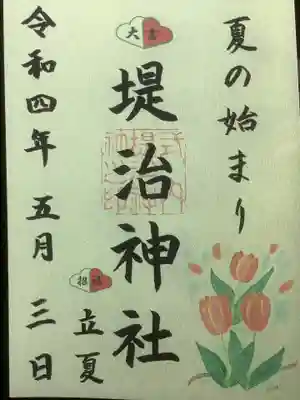 夏の始まり
大吉
堤治神社
招福
立夏
令和四年 五月 三日